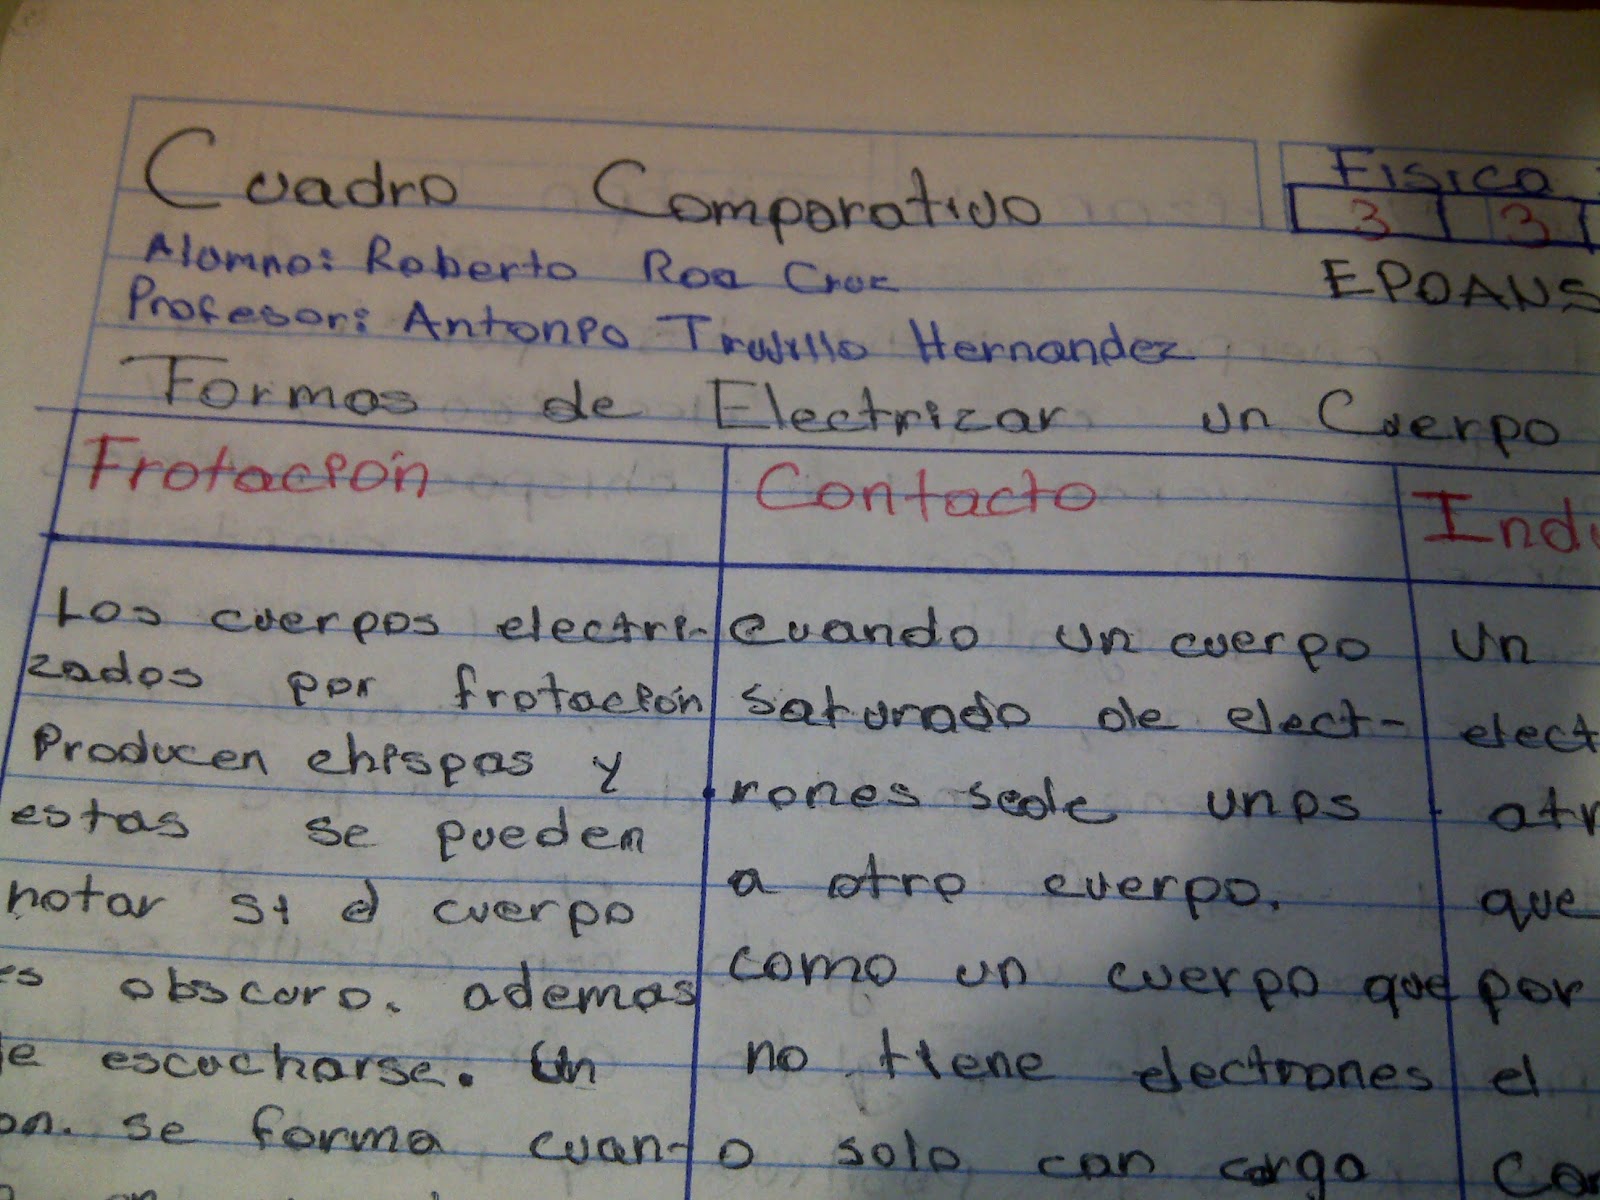 Cuadro Comparativo
Fisica
3 3
Alumno: Roberto Roa Cruz
EPOANS
Profesor: Antonio Trujillo Hernandez
Formas de Electrizar un Cuerpo
Frotación
Los cuerpos electri-
zados por frotación
Producen chispas y
estas se pueden
notar si el cuerpo
es obscuro. ademas
escucharse. Un
on. se forma cuan-
Contacto
Cuando un cuerpo
saturado de elect-
rones sede unos
a otro cuerpo.
como un cuerpo que
no tiene electrones
o solo con carga
Indu
Un
elect
atr
que
por
el
Con